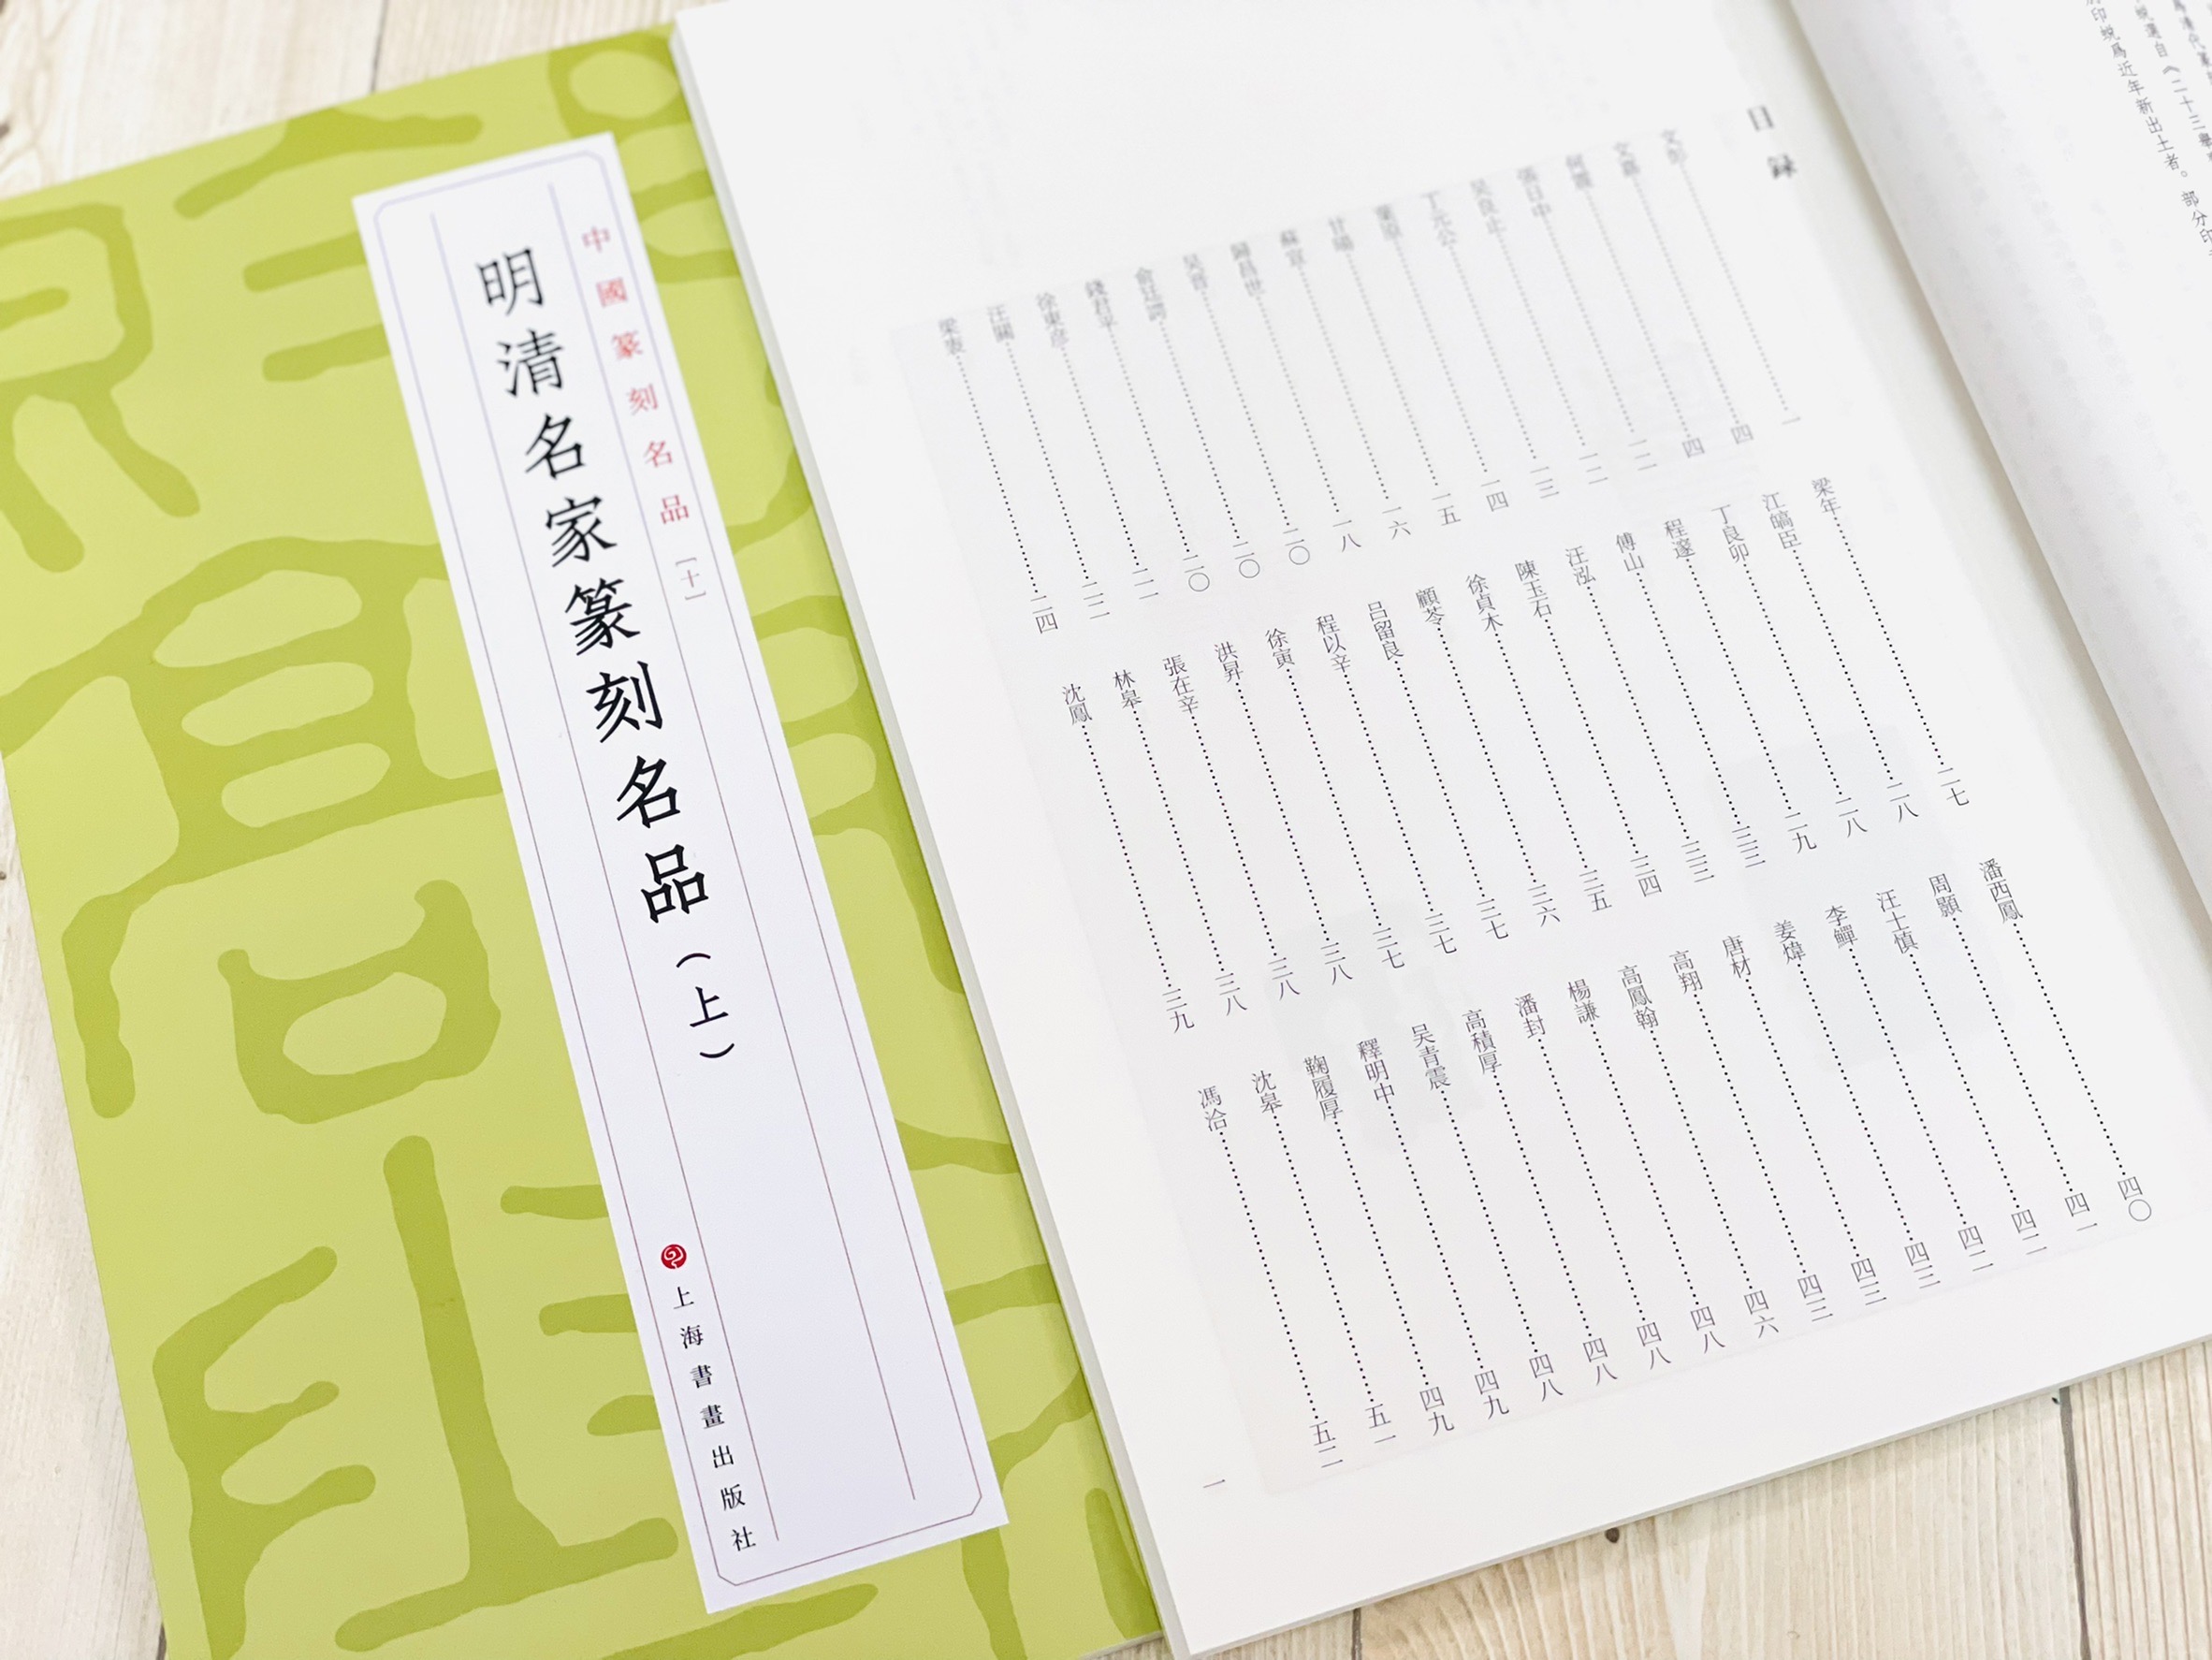 中國篆刻名品［十］
明清名家篆刻名品（上）
上海書畫出版社
目録
文彭……一
文嘉……四
何震……四
張日中……一二
吴良止……一二
丁元公……一三
葉原……一四
甘暘……一五
蘇宣……一六
歸昌世……一八
吴晋……二〇
俞廷諤……二〇
錢君平……二〇
徐東彦……二一
汪關……二二
梁袠……二四
梁年……二七
江皜臣……二八
丁良卯……二八
程邃……二九
傅山……三三
汪泓……三三
陳玉石……三四
徐貞木……三五
顧苓……三六
吕留良……三七
程以辛……三七
徐寅……三七
洪昇……三八
張在辛……三八
林皋……三八
沈鳳……三九
潘西鳳……四〇
周顥……四一
汪士慎……四二
李鱓……四二
姜煒……四三
唐材……四三
高翔……四三
高鳳翰……四六
楊謙……四八
潘封……四八
高積厚……四八
吴青震……四八
釋明中……四九
鞠履厚……四九
沈皋……五一
馮洽……五二
一
蜕選自《二十三舉
印蜕爲近年新出土者。部分印